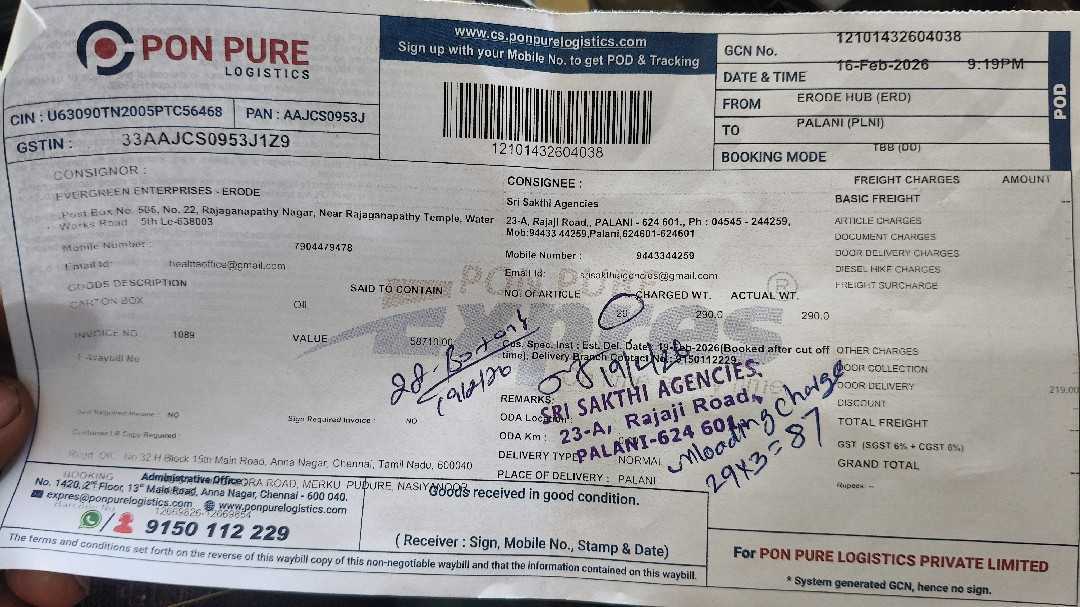 PON PURE
LOGISTICS
CIN : U63090TN2005PTC56468 PAN : AAJCS0953J
GSTIN : 33AAJCS0953J1Z9
www.cs.ponpurelogistics.com
Sign up with your Mobile No. to get POD & Tracking
12101432604038
GCN No. 12101432604038
DATE & TIME 16-Feb-2026 9:19PM
FROM ERODE HUB (ERD)
TO PALANI (PLNI)
BOOKING MODE TBB (DD)
POD
CONSIGNOR :
EVERGREEN ENTERPRISES - ERODE
Post Box No. 506, No. 22, Rajaganapathy Nagar, Near Rajaganapathy Temple, Water
Works Road 5th Le-638003
Mobile Number : 7904479478
Email Id: healthoffice@gmail.com
GOODS DESCRIPTION SAID TO CONTAIN
CARTON BOX Oil
INVOICE NO. 1089 VALUE 58710.00
E-Waybill No
Sign Required Invoice : NO
NO
Customer LR Copy Required :
CONSIGNEE :
Sri Sakthi Agencies
23-A, Rajaji Road,, PALANI - 624 601,, Ph : 04545 - 244259,
Mob:94433 44259,Palani,624601-624601
Mobile Number : 9443344259
Email Id: srisakthiagencies@gmail.com
NO. OF ARTICLE CHARGED WT. ACTUAL WT.
290.0 290.0
PON PURE
Expres
®
Cos. Spec. Inst : Est. Del. Date : 19-Feb-2026(Booked after cut off
time), Delivery Branch Contact No : 9150112229
REMARKS:
ODA Location :
ODA Km :
DELIVERY TYPE NORMAL
PLACE OF DELIVERY : PALANI
SRI SAKTHI AGENCIES.
23-A, Rajaji Road,
PALANI-624 601.
19/2/26
unloading charge
29x3=87
FREIGHT CHARGES AMOUNT
BASIC FREIGHT
ARTICLE CHARGES
DOCUMENT CHARGES
DOOR DELIVERY CHARGES
DIESEL HIKE CHARGES
FREIGHT SURCHARGE
OTHER CHARGES
DOOR COLLECTION
DOOR DELIVERY 219.00
DISCOUNT
TOTAL FREIGHT
GST (SGST 6% + CGST 6%)
GRAND TOTAL
Rupees: --
No 32 H Block 15th Main Road, Anna Nagar, Chennai, Tamil Nadu, 600040
BOOKING
ROAD, MERKU PUDURE,
Administrative Office
No. 1420, 2nd Floor, 13th Main Road, Anna Nagar, Chennai - 600 040.
expres@ponpurelogistics.com www.ponpurelogistics.com
9150 112 229
Goods received in good condition.
( Receiver : Sign, Mobile No., Stamp & Date)
For PON PURE LOGISTICS PRIVATE LIMITED
* System generated GCN, hence no sign.
The terms and conditions set forth on the reverse of this waybill copy of this non-negotiable waybill and that the information contained on this waybill.